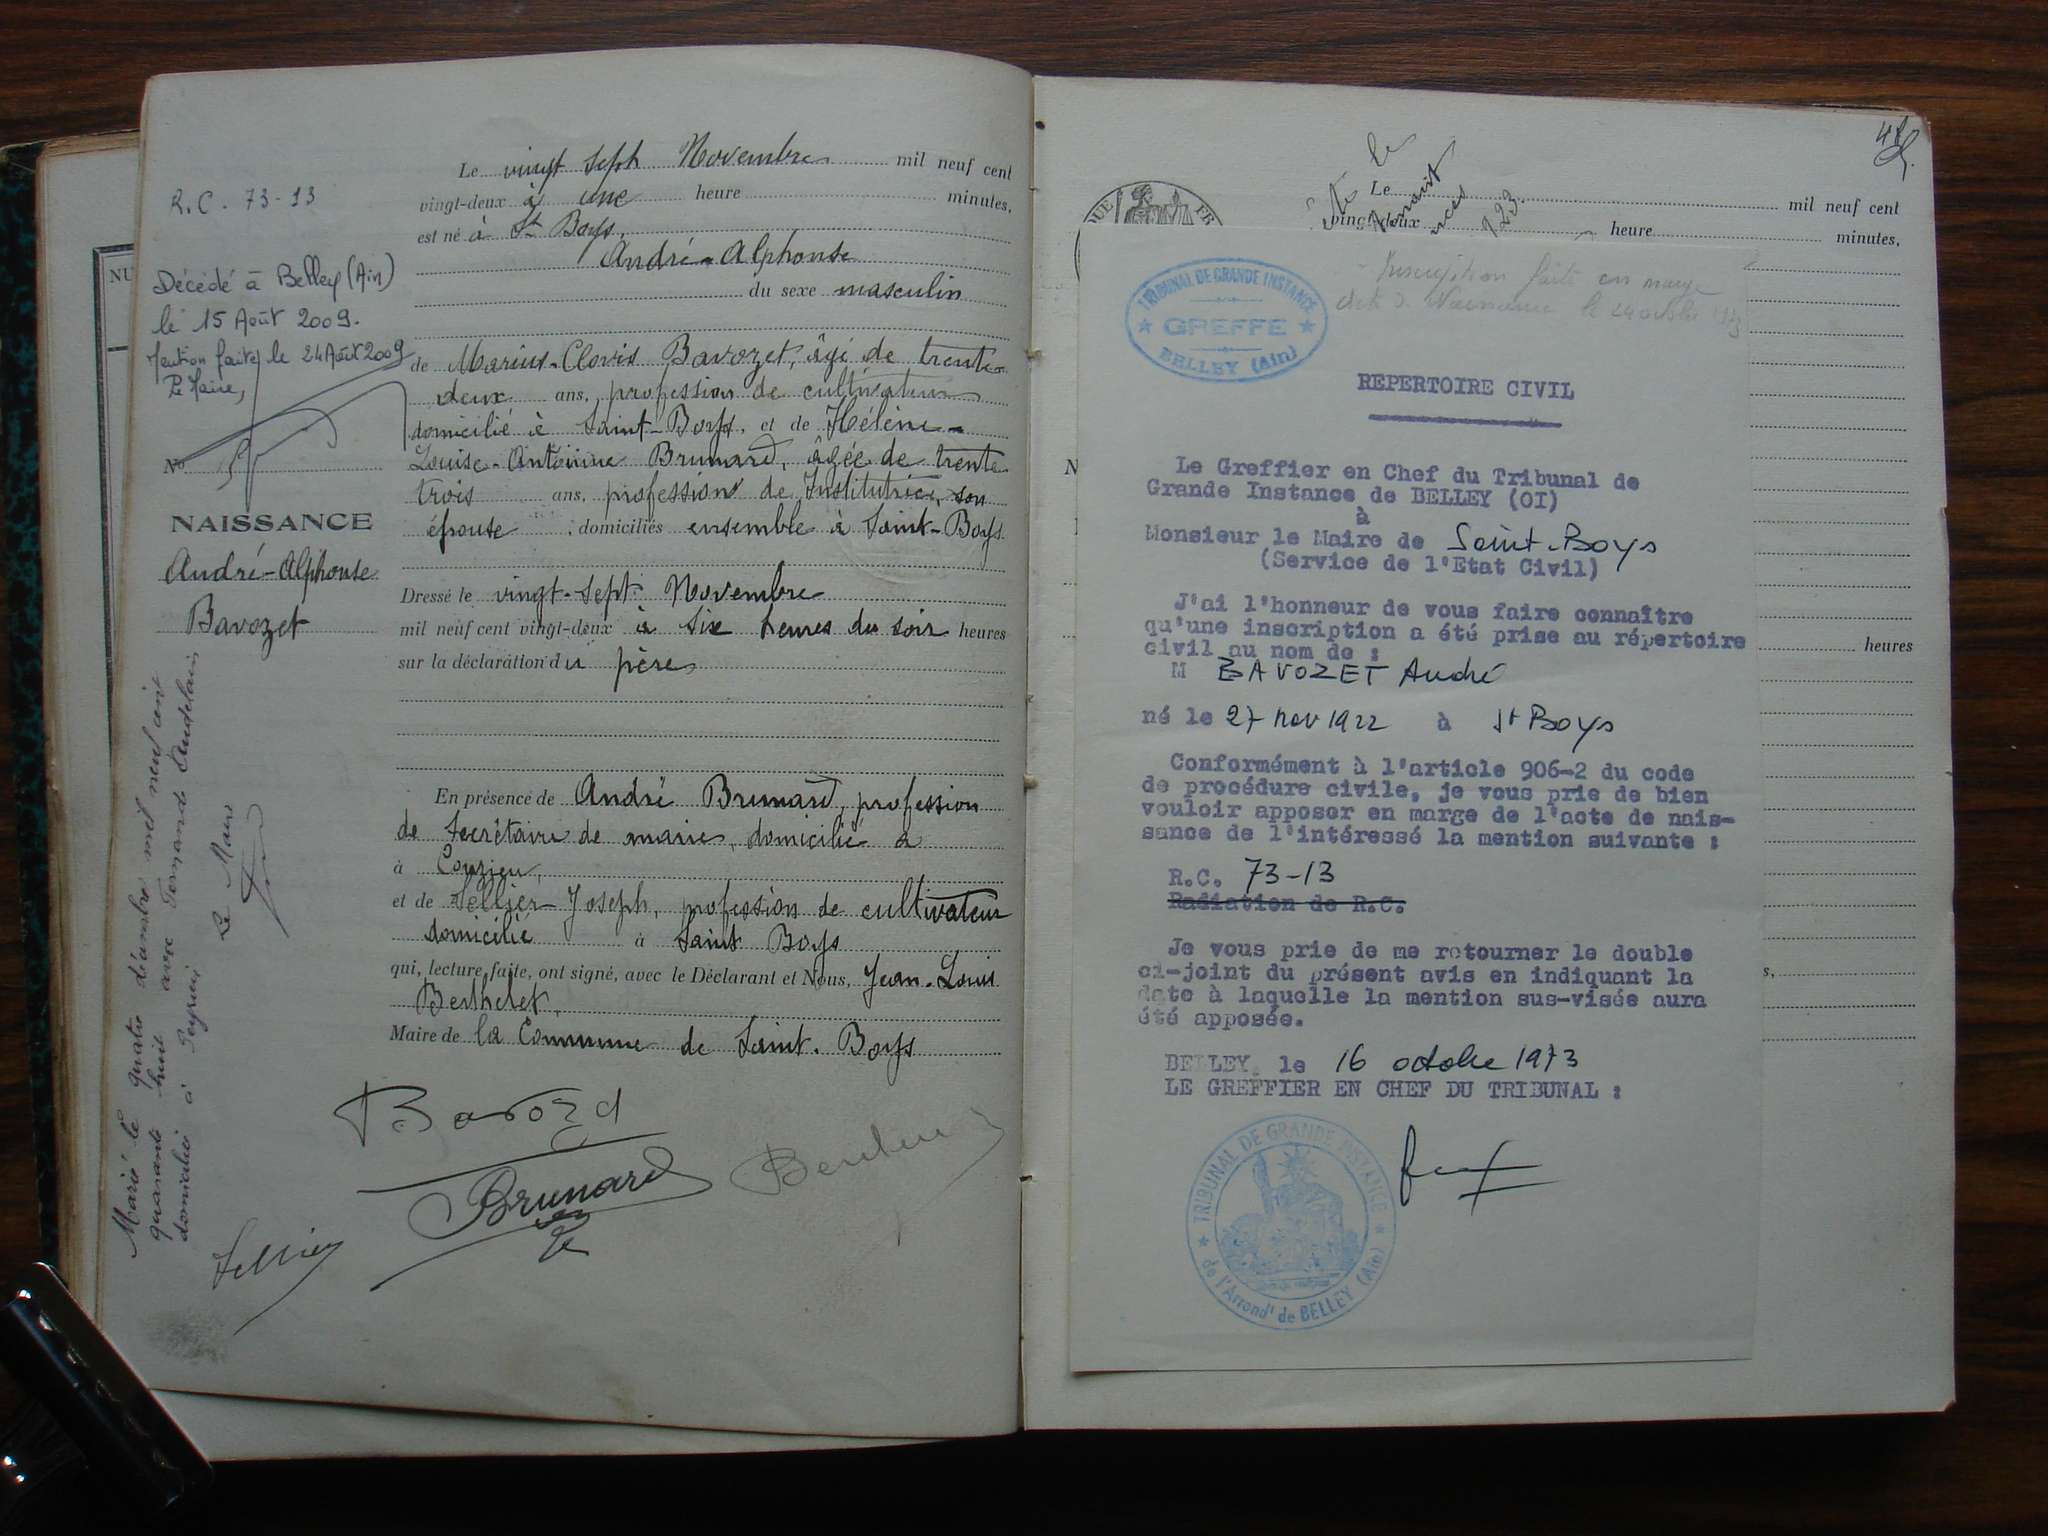 R.C. 73-13
Décédé à Belley (Ain)
le 15 Août 2009.
Mention faite le 24 Août 2009
Le Maire,
No
NAISSANCE
André-Alphonse
Bavozet
Marié le quatre décembre mil neuf cent
quarante huit avec Fernande
domiciliés à Peyrieu
Le Maire
Le vingt sept Novembre mil neuf cent
vingt-deux à une heure minutes,
est né à St Boys,
André-Alphonse
du sexe masculin
de Marius-Clovis Bavozet, âgé de trente
deux ans, profession de cultivateur
domicilié à Saint-Boys, et de Hélène-
Louise-Antoinine Brunard, âgée de trente
trois ans, profession de Institutrice, son
épouse domiciliés ensemble à Saint-Boys
Dressé le vingt-sept Novembre
mil neuf cent vingt-deux à six heures du soir heures
sur la déclaration du père
En présence de André Brunard, profession
de Secrétaire de mairie, domicilié à
à Conzieu,
et de Tellier Joseph, profession de cultivateur
domicilié à Saint Boys
qui, lecture faite, ont signé, avec le Déclarant et Nous, Jean-Louis
Berthelet,
Maire de la Commune de Saint-Boys
Bavozet
Brunard
Tellier
Le mil neuf cent
vingt-deux heure minutes,
heures
TRIBUNAL DE GRANDE INSTANCE
GREFFE
BELLEY (Ain)
Inscription faite en marge
acte de Naissance le octobre
REPERTOIRE CIVIL
Le Greffier en Chef du Tribunal de
Grande Instance de BELLEY (OI)
à
Monsieur le Maire de Saint-Boys
(Service de l'Etat Civil)
J'ai l'honneur de vous faire connaître
qu'une inscription a été prise au répertoire
civil au nom de :
M BAVOZET André
né le 27 nov 1922 à St Boys
Conformément à l'article 906-2 du code
de procédure civile, je vous prie de bien
vouloir apposer en marge de l'acte de nais-
sance de l'intéressé la mention suivante :
R.C. 73-13
Radiation de R.C.
Je vous prie de me retourner le double
ci-joint du présent avis en indiquant la
date à laquelle la mention sus-visée aura
été apposée.
BELLEY, le 16 octobre 1973
LE GREFFIER EN CHEF DU TRIBUNAL :
TRIBUNAL DE GRANDE INSTANCE
de l'Arrondt de BELLEY (Ain)